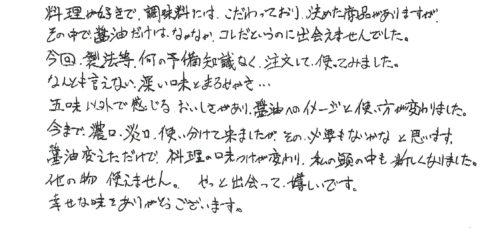 料理が好きで、調味料には、こだわっており、決めた商品がありますが、
その中で醤油だけは、なかなか、コレだというのに出会えませんでした。
今回、製法等、何の予備知識なく、注文して、使ってみました。
なんとも言えない、深い味とまろやかさ…
五味以外で感じる おいしさがあり、醤油へのイメージと使い方が変わりました。
今まで、濃口、淡口、使い分けて来ましたが、その必要もないかな と思います。
醤油変えただけで、料理の味つけが変わり、私の頭の中も新しくなりました。
他の物 使えません。 やっと出会って、嬉しいです。
幸せな味をありがとうございます。